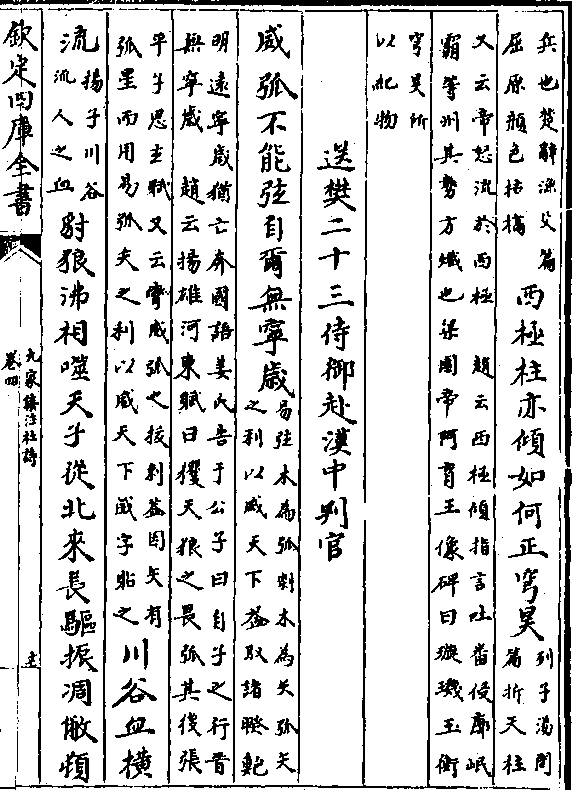 兵也楚辭漁父篇
屈原顔色枯槁
西極柱亦傾如何正穹昊
列子湯問
篇折天柱
又云帝怒流於西極 趙云西極傾指言吐蕃侵廓岷
霸等州其勢方熾也梁簡帝阿育王像碑曰璇璣玉衡
穹昊所
以紀物
送樊二十三侍御赴漢中判官
威弧不能弦自爾無寧歲
易弦木為弧剡木為矢弧矢
之利以威天下蓋取諸睽鮑
明遠寧歲猶亡奔國語姜氏告于公子曰自子之行晋
無寧歲 趙云揚雄河東賦曰彏天狼之畏弧其後張
平子思玄賦又云彎威弧之撥剌蓋因矢有
弧星而用易弧矢之利以威天下威字貼之
川谷血橫
流
揚子川谷
流人之血
豺狼沸相噬天子從北來長驅振凋敝頓
欽定四庫全書
九家集注杜詩
卷四